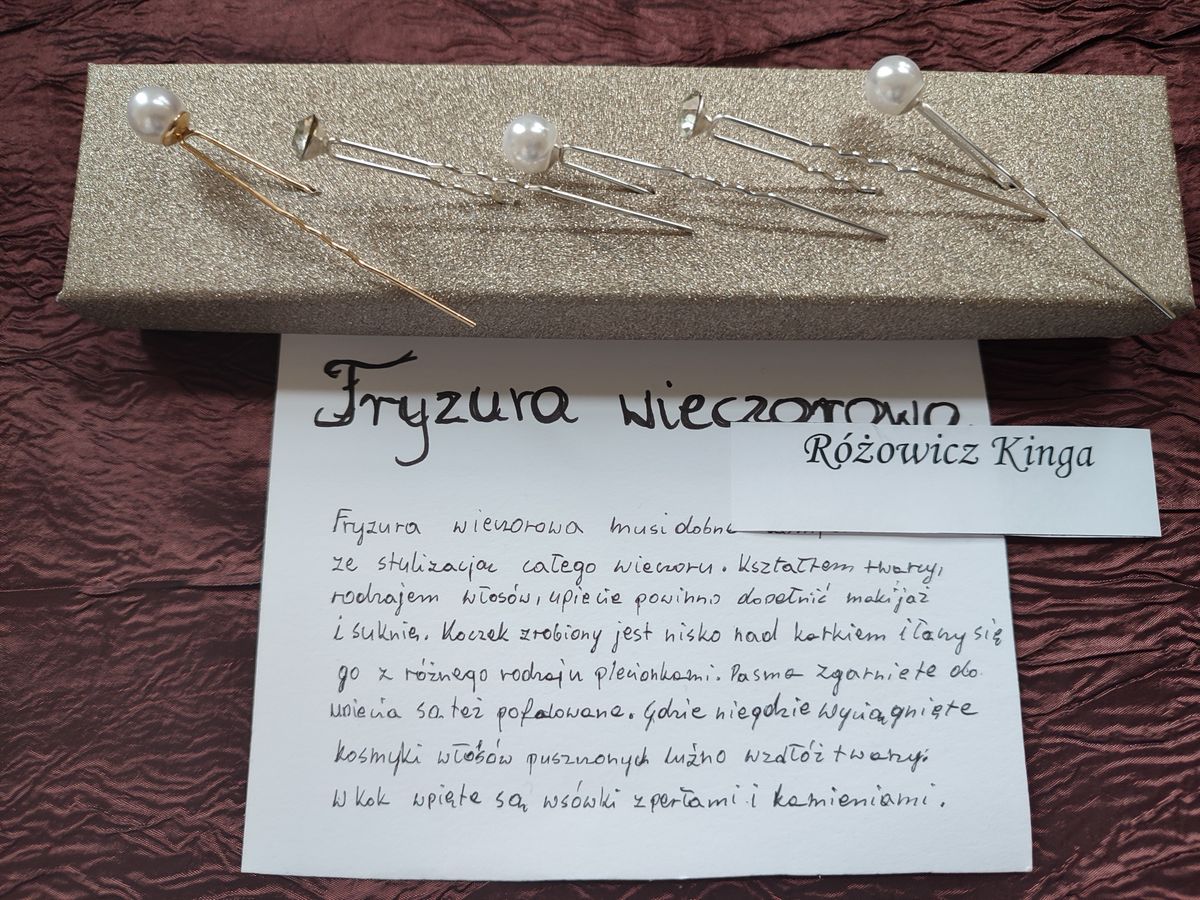 Fryzura wieczorowa
Różowicz Kinga
Fryzura wieczorowa musi dobrze
ze stylizacją całego wieczoru. Kształtem twarzy,
rodzajem włosów, upięcie powinno dopełnić makijaż
i suknię. Koczek zrobiony jest nisko nad karkiem i łączy się
go z różnego rodzaju plecionkami. Pasma zgarnięte do
upięcia są też pofalowane. Gdzie niegdzie wyciągnięte
kosmyki włosów puszczonych luźno wzdłóż twarzy.
W kok wpięte są wsówki z perłami i kamieniami.